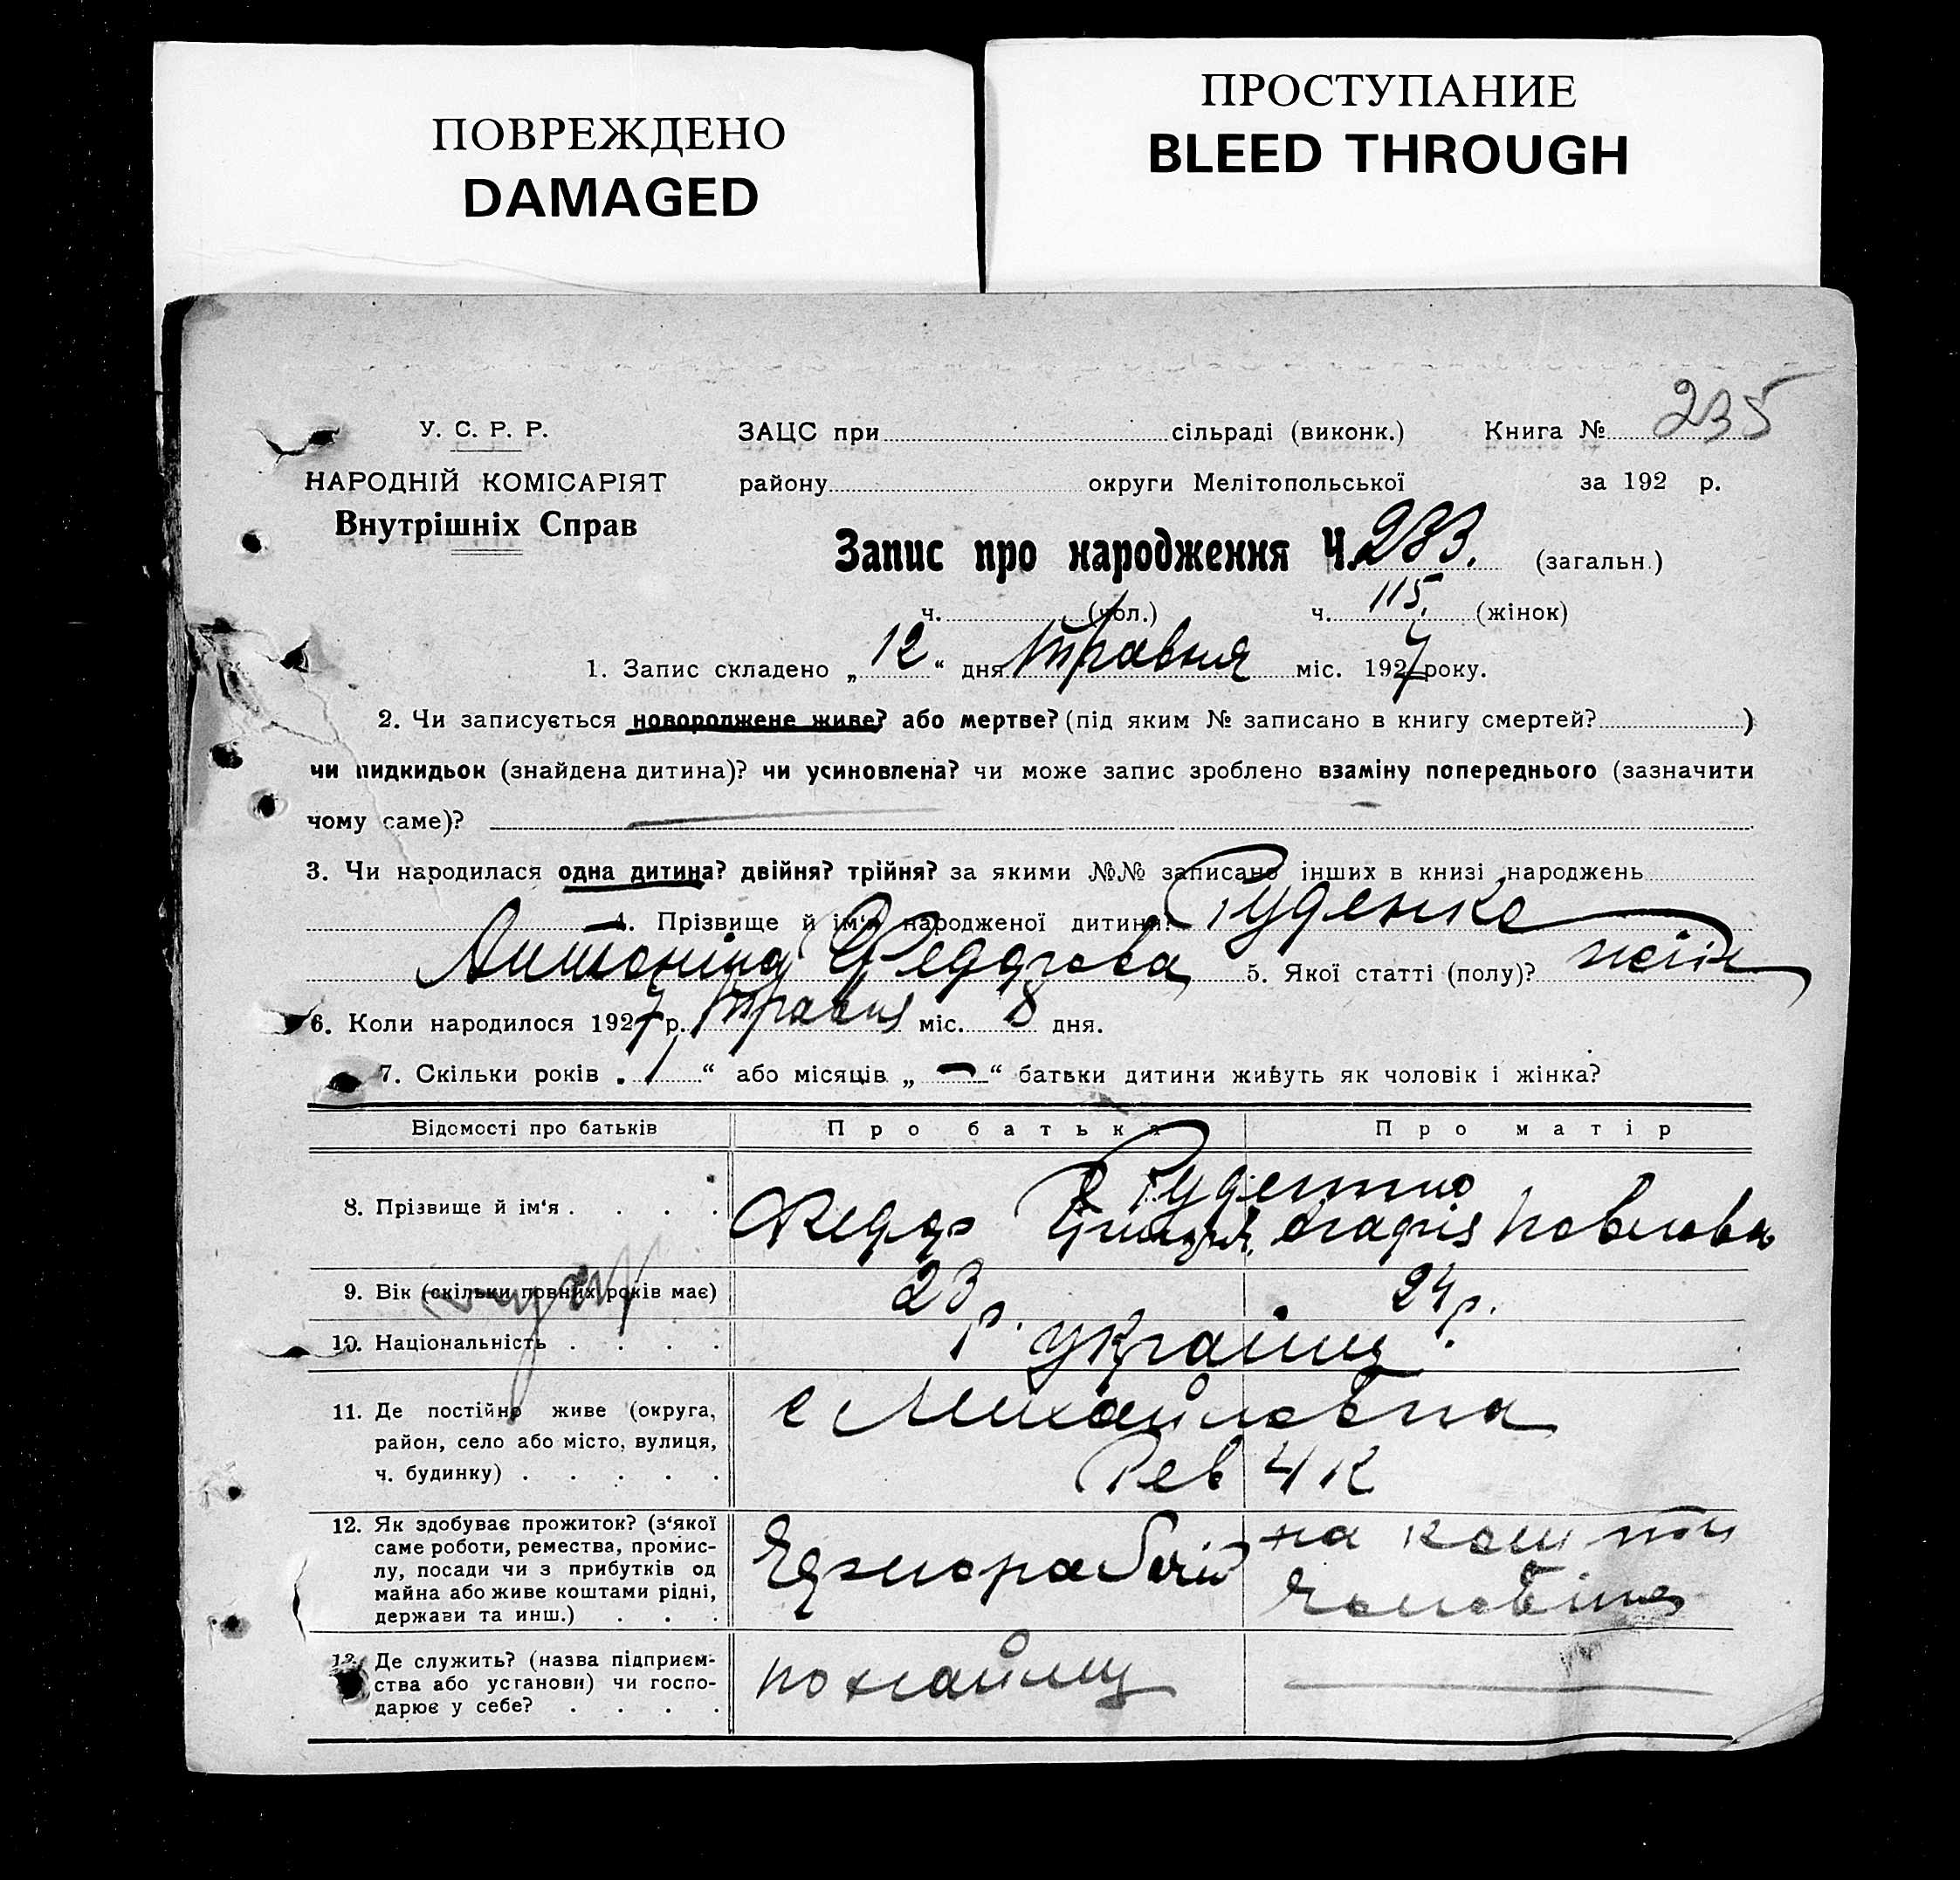 ПОВРЕЖДЕНО
DAMAGED
ПРОСТУПАНИЕ
BLEED THROUGH
235
У. С. Р. Р.
НАРОДНІЙ КОМІСАРІЯТ
Внутрішніх Справ
ЗАЦС при сільраді (виконк.) Книга №
району округи Мелітопольської за 192 р.
Запис про народження Ч. 283. (загальн.)
ч. (чол.) ч. 115. (жінок)
1. Запис складено „12“ дня травня міс. 1927 року.
2. Чи записується новороджене живе? або мертве? (під яким № записано в книгу смертей? )
чи пидкидьок (знайдена дитина)? чи усиновлена? чи може запис зроблено взаміну попереднього (зазначити
чому саме)?
3. Чи народилася одна дитина? двійня? трійня? за якими №№ записано інших в книзі народжень
4. Прізвище й ім‘я народженої дитини? Руденко
Антоніна Федорова 5. Якої статті (полу)? жін
6. Коли народилося 1927 р. травня міс. 8 дня.
7. Скільки років „1“ або місяців „—“ батьки дитини живуть як чоловік і жінка?
Відомості про батьків Про батька Про матір
8. Прізвище й ім‘я . . . . Руденко
Федор Марія Павлова
9. Вік (скільки повних років має) 23 р. 24 р.
10. Національність . . . . українц
11. Де постійно живе (округа, район, село або місто, вулиця, ч. будинку) . . . . .
с Михайловка
Рев 4 К
12. Як здобуває прожиток? (з‘якої
саме роботи, ремества, промис-
лу, посади чи з прибутків од
майна або живе коштами рідні,
держави та инш.) . . .
на кошти
чоловіка
13. Де служить? (назва підприєм-
ства або установи) чи госпо-
дарює у себе? . . . .
по найму